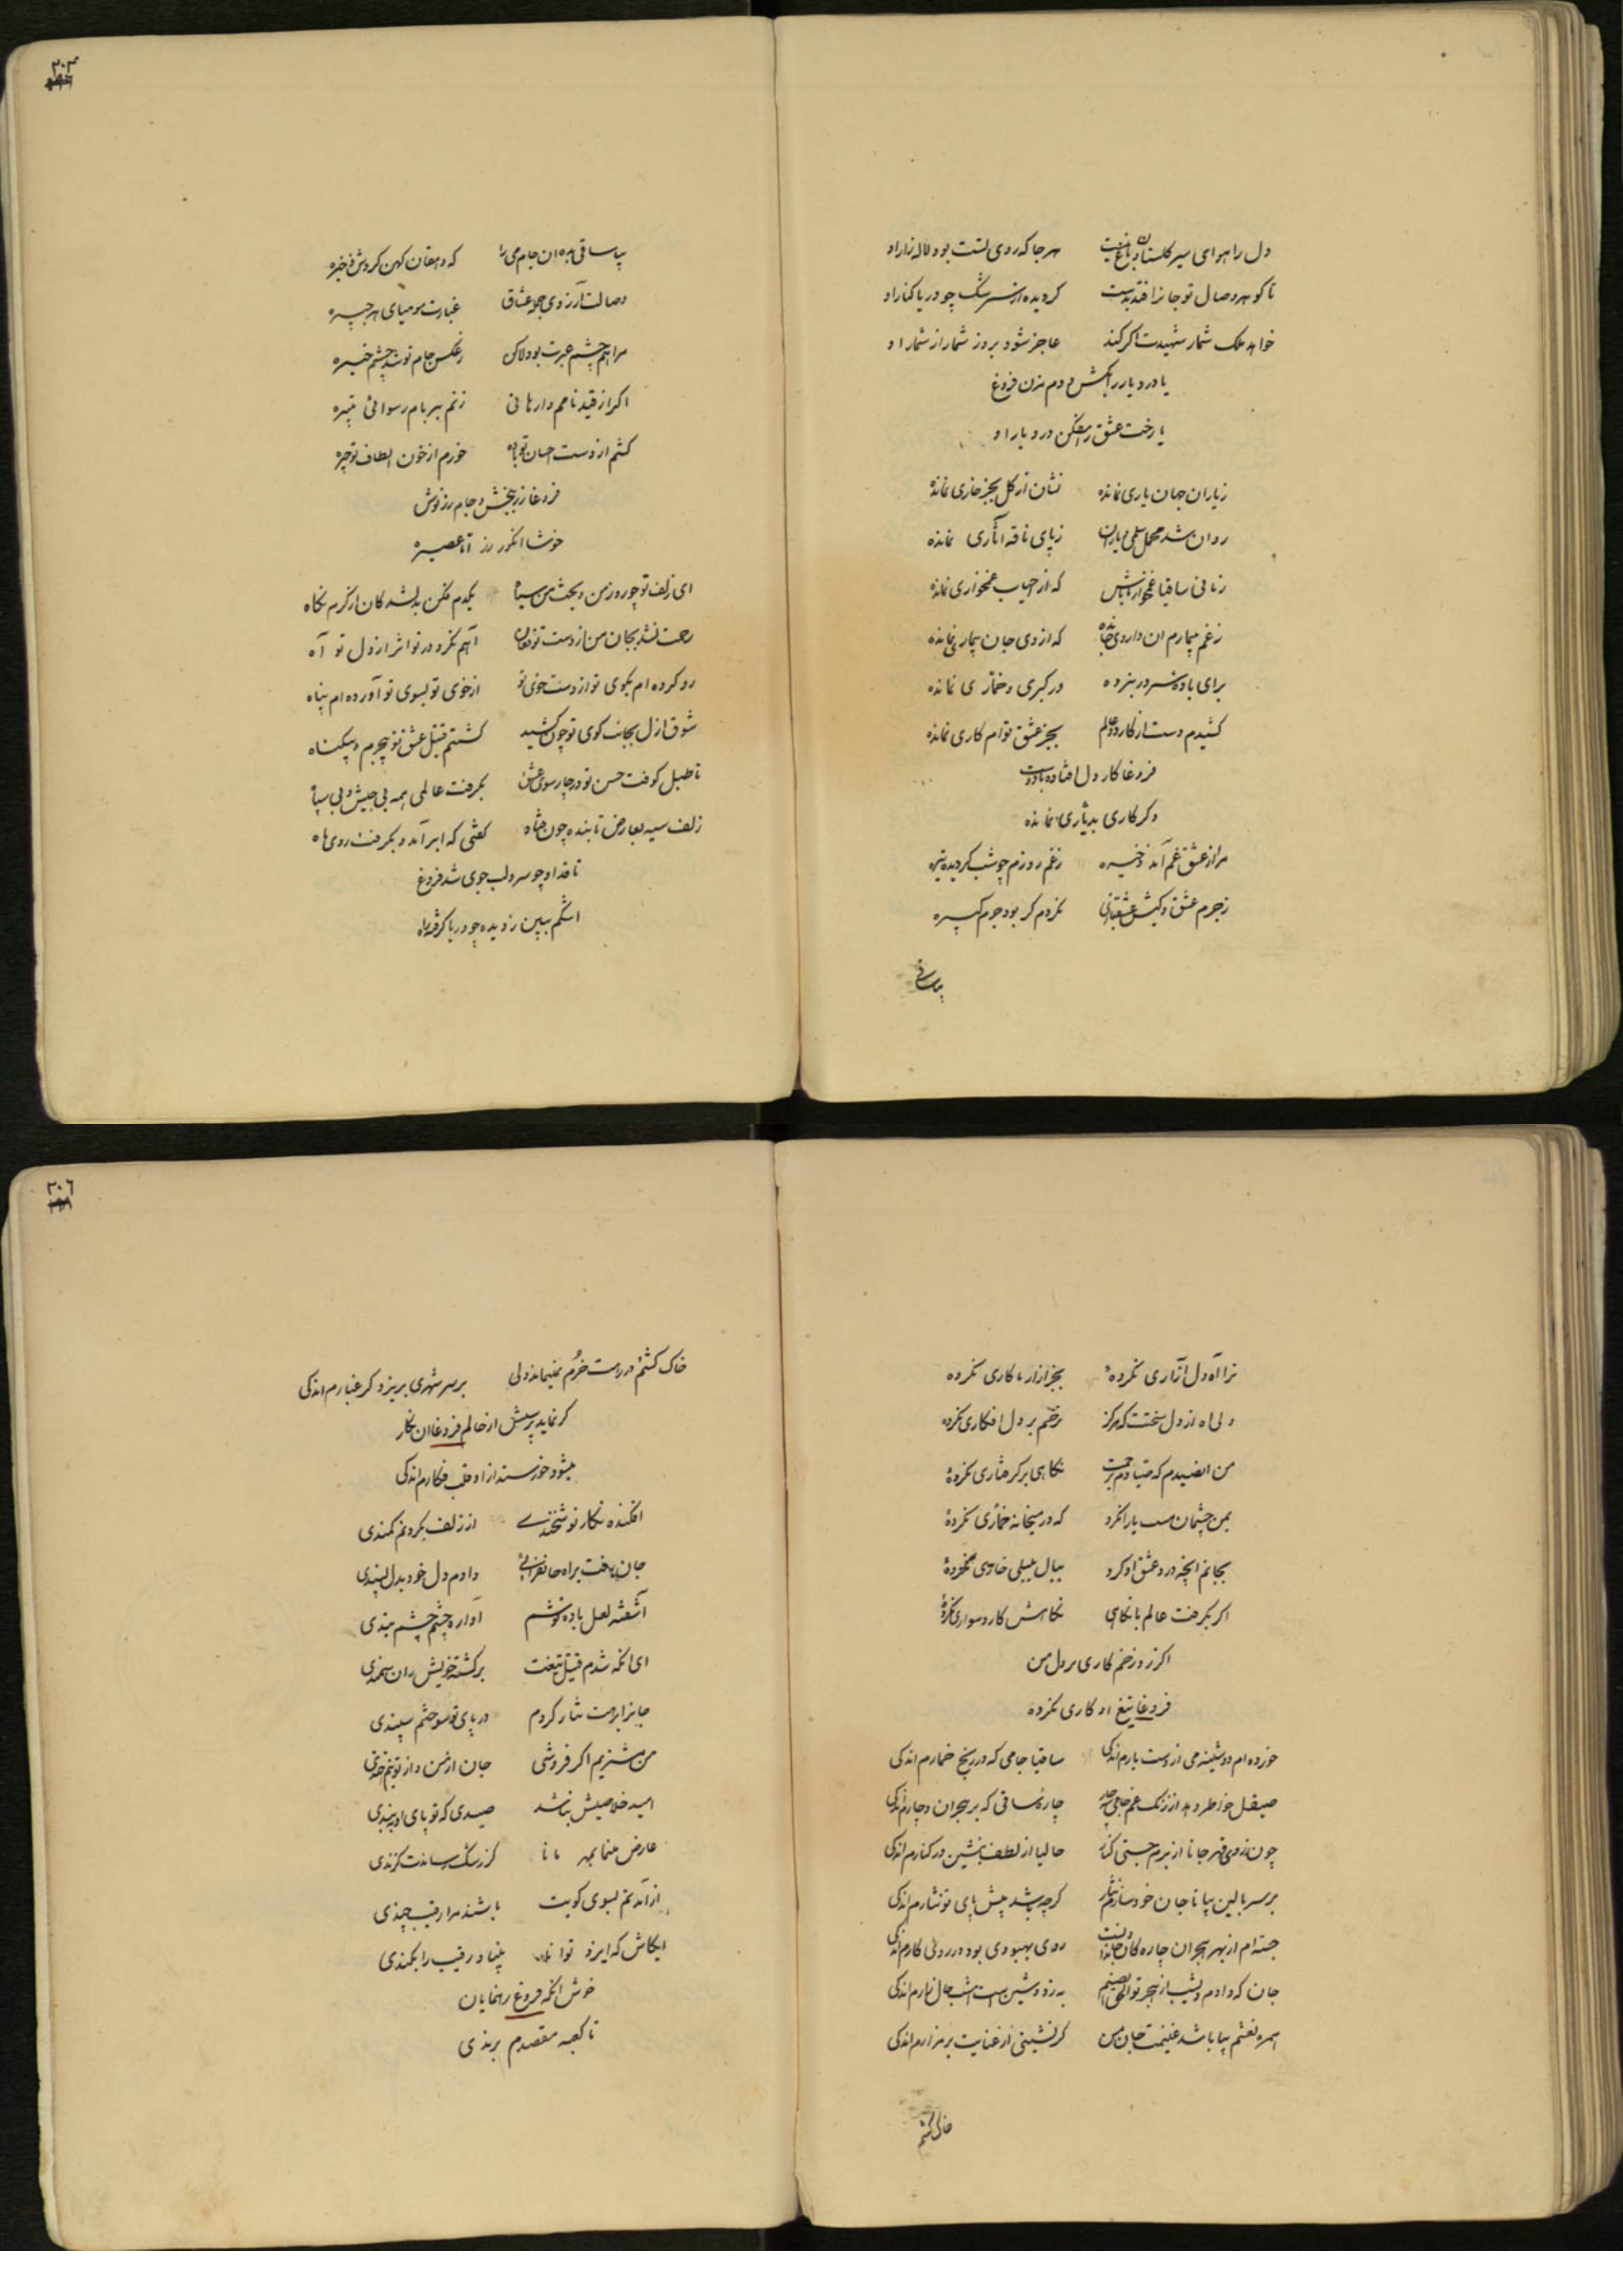 دل را هوای سیر گلستان و باغ نیست هر جا که روی تست بود لاله زار او
تا گوهر وصال تو جانرا فتد بدست گردیده از سرشک چو دریا کنار او
خواهد ملک شمار شهیدت اگر کند عاجز شود بروز شمار از شمار او
یا درد یار را بکش و دم مزن فروغ
یا رخت عشق را مفکن در دیار او
ز یاران جهان یاری نمانده نشان از گل بجز خاری نمانده
روان شد محمل سلمی و یاران ز پای ناقه آثاری نمانده
زمانی ساقیا غمخوار باش که از احباب غمخواری نمانده
ز غم بیمارم ان داروی جان ده که از وی جان بیماری نمانده
برای باده سر در بنزده در گبری و خماری نمانده
کشیدم دست از کار دو عالم بجز عشق توام کاری نمانده
فروغا کار دل افتاده با دوست
دگر کاری بدیاری نمانده
مرا از عشق غم آمد ذخیره ز غم روزم چو شب گردیده تیره
ز جرم عشق و کیش عشقبازی نکردم گر بود جرم کبیره
بیا ساقی
٣٠٣
بیا ساقی بده ان جام می را که دهقان کهن کردش ذخیره
وصالت آرزوی جمله عشاق غبارت مومیای هر جبیره
مرا هم چشم عبرت بود لاکن ز عکس جام تو شد چشم خیره
اگر از قید نامم وارهانی زنم بر بام رسوائی تبیره
کشم از دست احسان تو باده خورم از خون الطاف تو جیره
فروغا زر ببخش و جام زر نوش
خوشا انگور رز آنا عصیره
ای زلف تو چو روز من و بخت من سیاه یکدم فکن بدلشدگان از کرم نگاه
رحمت نشد بجان من از دست تو فغان آهم نکرد در تو اثر از دل تو آه
رو کرده ام بکوی تو از دست خوی تو از خوی تو بسوی تو آورده ام پناه
شوق ازل بجانب کوی تو چون کشید کشتم قتیل عشق تو بیجرم و بیگناه
تا طبل کوفت حسن تو در چار سوی عشق بگرفت عالمی همه بی جیش و بی سپاه
زلف سیه بعارض تابنده چون فتاد گفتی که ابر آمد و بگرفت روی ماه
تا قد او چو سرو لب جوی شد فروغ
اشکم ببین ز دیده چو دریا گرفته راه
ترا آه دل آزاری نکرده بجز آزار ما کاری نکرده
ولی آه از دل سختت که هرگز ترحم بر دل افکاری نکرده
من ان صیدم که صیادم ز رحمت نگاهی بر گرفتاری نکرده
بمن چشمان مست یار انکرد که در میخانه خماری نکرده
بجانم انچه درد عشق او کرد ببال بلبلی خاری نکرده
اگر بگرفت عالم با نگاهی نگاهش کار دسواری نکرده
اگر زد زخم کاری بر دل من
فروغا تیغ او کاری نکرده
خورده ام دوشینه می از دست یارم اندکی ساقیا جامی که در رنج خمارم اندکی
صیقل خواطر دهد از زنک غم جامی بده چاره ساقی که بر هجران دچارم اندکی
چون ز روی قهر جانا از برم جستی کنار حالیا از لطف بنشین در کنارم اندکی
بر سر بالین بیا تا جان خود سازم نثار گرچه باشد پیش پای تو نثارم اندکی
جسته ام از بهر هجران چاره کان جاندا دنست روی بهبودی بود در روی کارم اندکی
جان که دادم دیشب از هجر تو الحق ای صنم به ز دوشین است امشب حال زارم اندکی
همره نعشم بیا باشد غنیمت جان من گر نشینی از عنایت بر مزارم اندکی
خاک کشتم
٣٠٤
خاک کشتم در رهت خرم نمیماند ولی بر سر شهدی بریزد گر غبارم اندکی
گر نماید پرسش از حالم فروغا ان نگار
میشود خورسند از او قلب فکارم اندکی
افکنده نگار نوشخندی از زلف بگردنم کمندی
جان رفت براه جانفزائی دادم دل خود بدل پسندی
آشفته لعل باده نوشم آواره چشم چشم بندی
ای انکه شدم قتیل تیغت بر کشته خویش ران سمندی
جانرا برهت نثار کردم در پای تو سوختم سپندی
من مشتریم اگر فروشی جان از من و از تو نوشخندی
امید خلاصیش نباشد صیدی که تو پای او ببندی
عارض منما بمه مانا کز رشک رساندت گزندی
از آمدنم بسوی کویت باشند مرا رقیب چندی
ایکاش که ایزد توانا بیناد رقیب را بکمندی
خوش انکه فروغ رهنمایان
تا کعبه مقصدم برندی